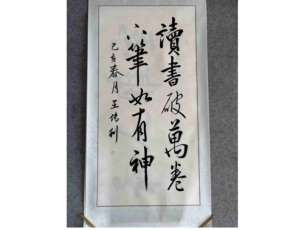 讀書破萬卷
下筆如有神
己亥暮月王德利